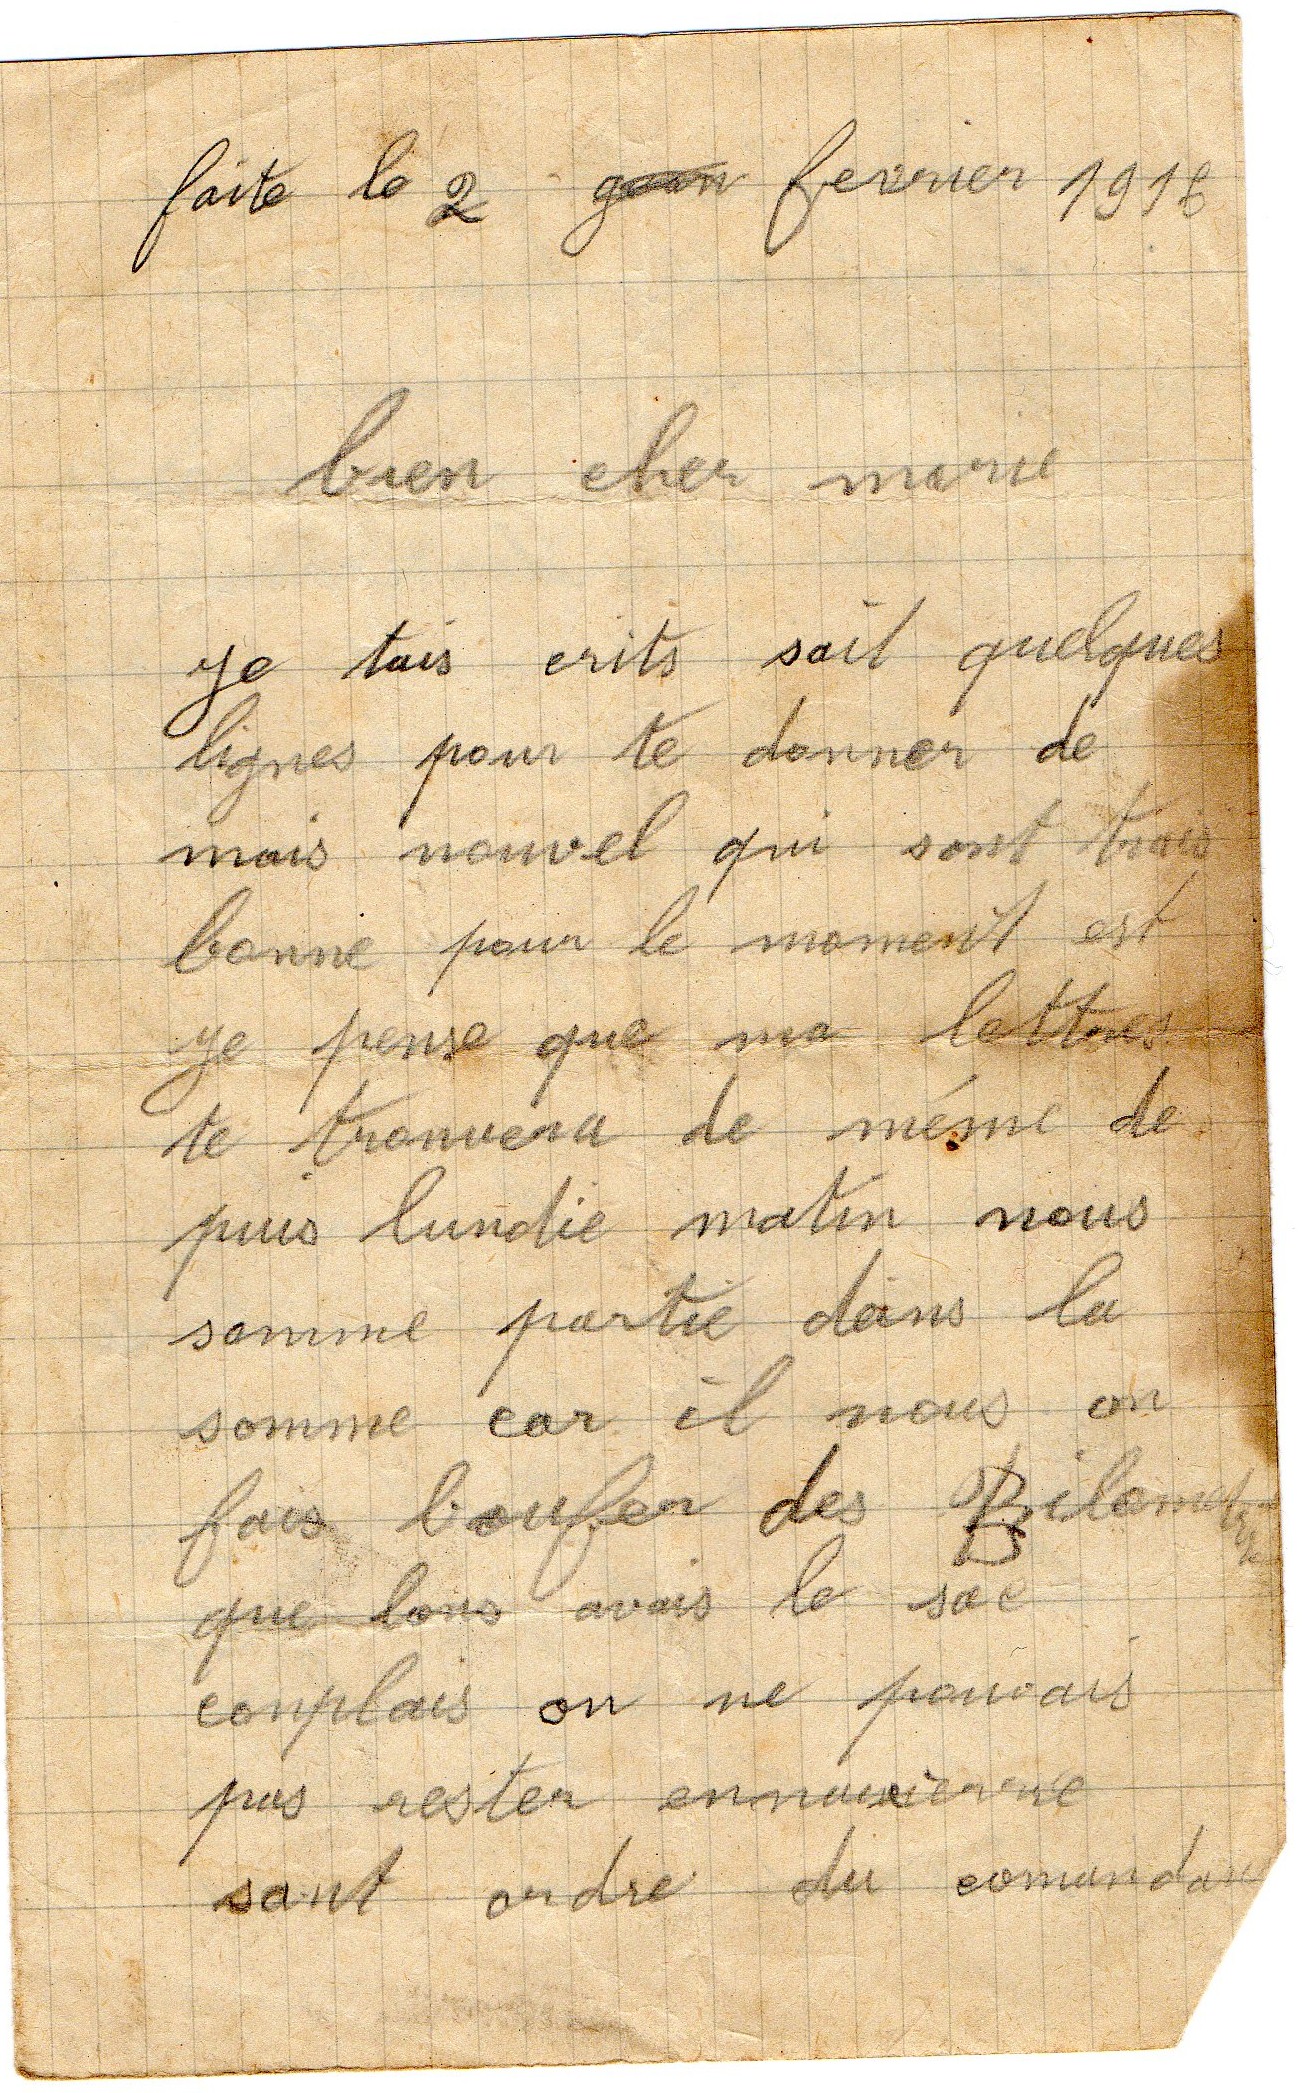 faite le 2 fevrier 1916
bien cher marie
je tais erits sait quelques
lignes pour te donner de
mais nouvel qui sont trais
bonne pour le moment est
je pense que ma lettres
te trouvera de méme de
puis lundie matin nous
somme partie dans la
somme car il nous on
fais boufer des
que lons avais le sac
conplais on ne pouvais
pas rester ennarierre
sant ordre du